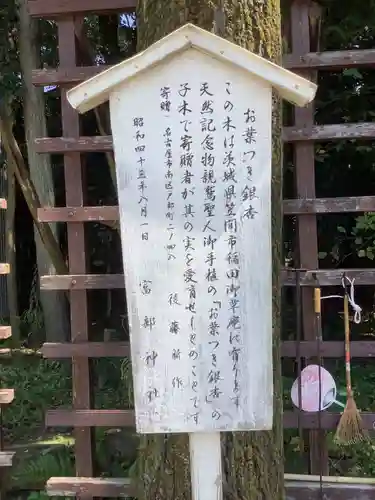 お葉つき銀杏
この木は茨城県笠間市稲田御草庵に有ります
天然記念物親鸞聖人御手植の「お葉つき銀杏」の
子木で寄贈者がその実を育てたものとのことです
寄贈 名古屋市南区戸部町二ノ四八
後藤新作
昭和四十五年八月一日
富部神社